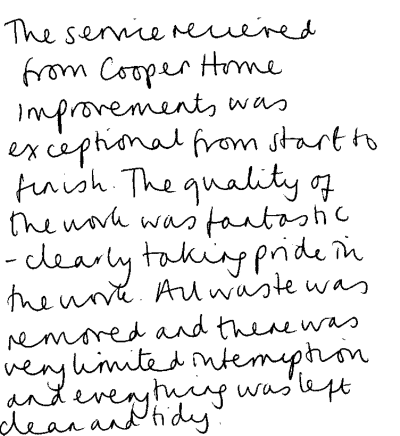 The service received
from Cooper Home
Improvements was
exceptional from start to
finish. The quality of
the work was fantastic
- clearly taking pride in
the work. All waste was
removed and there was
very limited interruption
and everything was left
clean and tidy.